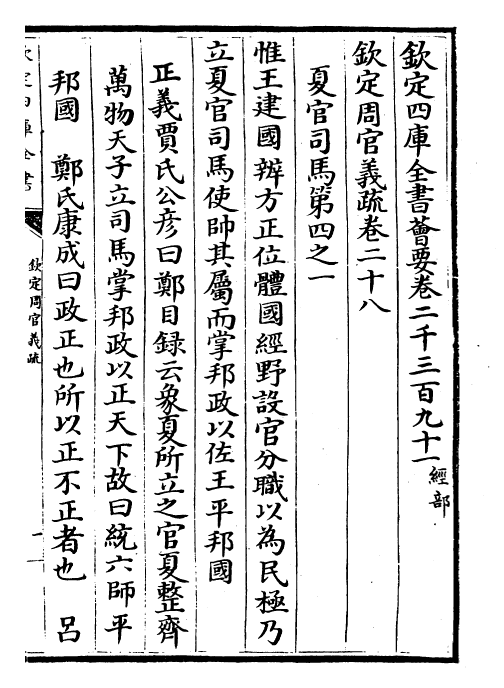 欽定四庫全書薈要卷二千三百九十一經部
欽定周官義疏卷二十八
夏官司馬第四之一
惟王建國辨方正位體國經野設官分職以為民極乃
立夏官司馬使帥其屬而掌邦政以佐王平邦國
正義賈氏公彦曰鄭目録云象夏所立之官夏整齊
萬物天子立司馬掌邦政以正天下故曰統六師平
邦國　鄭氏康成曰政正也所以正不正者也　呂
欽定四庫全書
欽定周官義疏
一